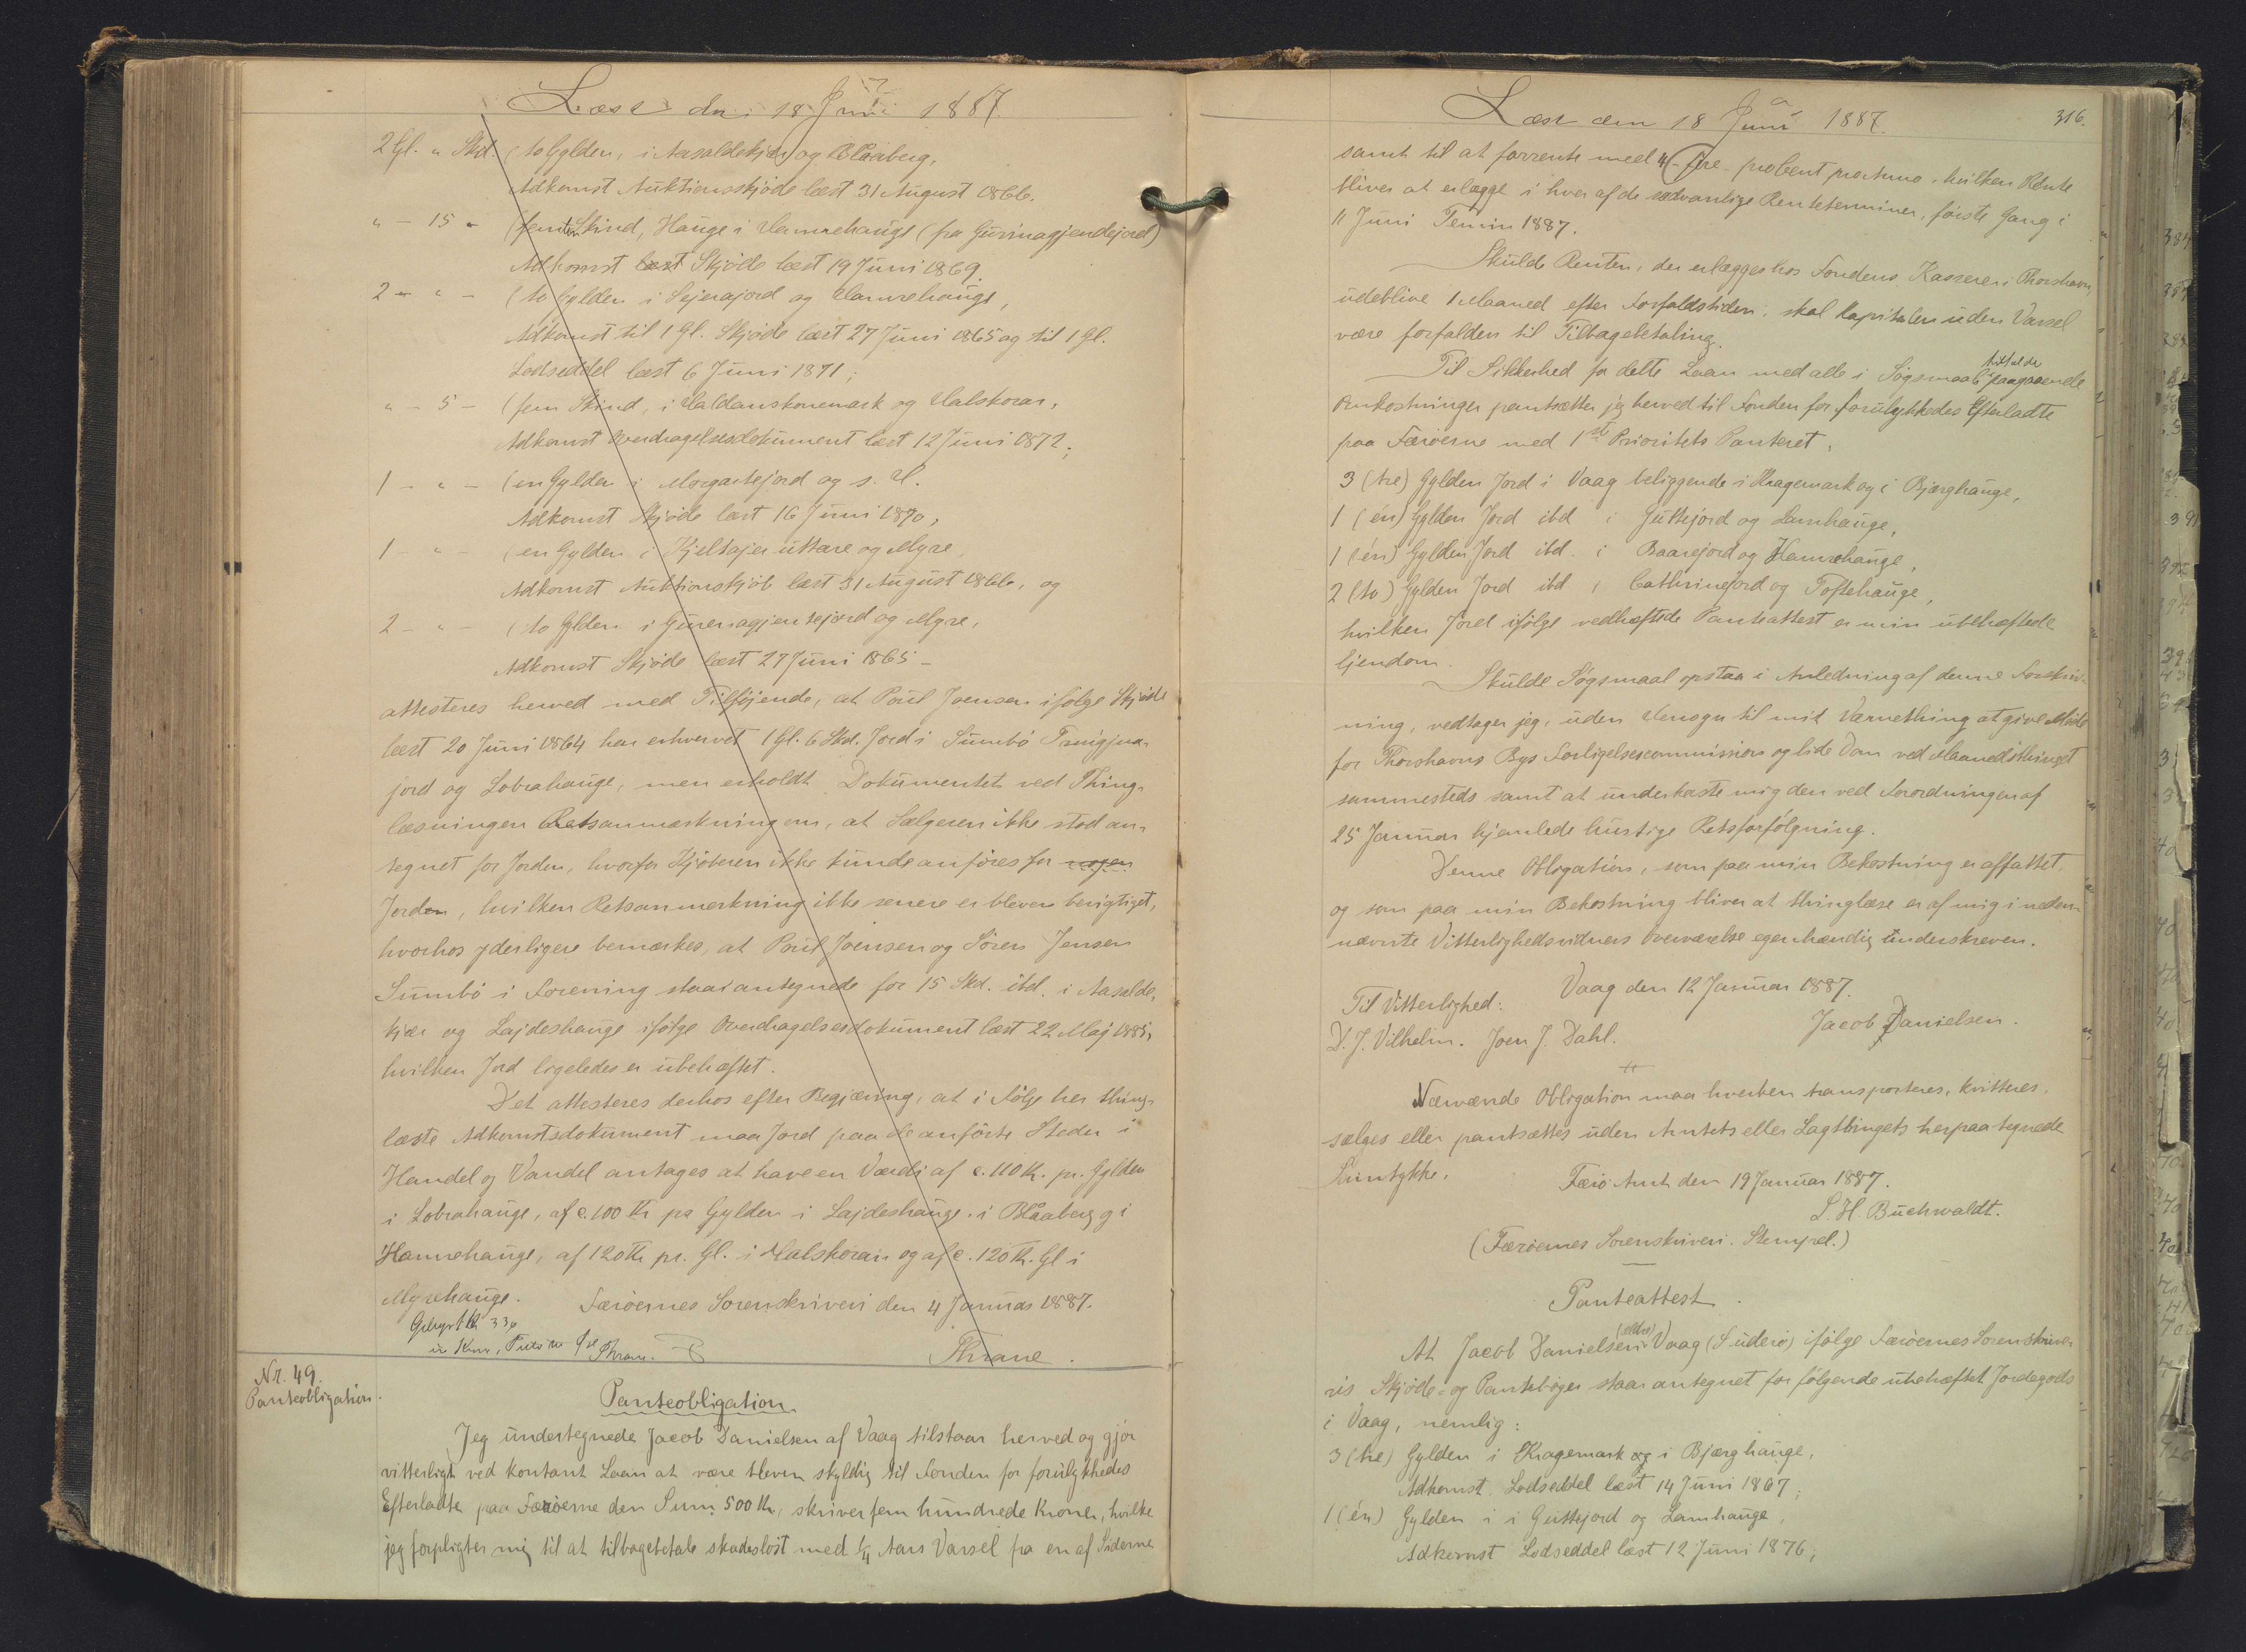 Læst den 18 Juni 1887.
2 Gl. " Skd. (to Gylden, i Aasaldekjær og Blaaberg,
Adkomst Auktionsskjöde læst 31 August 1866.
" - 15 " (femten Skind, Hauge i Hamrehauge (fra Gurinagjendejord)
Adkomst Skjöde læst 19 Juni 1869.
2 - " - (to Gylden i Sejerajord og Hamrehauge,
Adkomst til 1 Gl. Skjöde læst 27 Juni 1865 og til 1 Gl.
Lodseddel læst 6 Juni 1871;
" - 5 - (fem Skind, i Haldanskonemark og Halskoran,
Adkomst Overdragelsesdokument læst 12 Juni 1872;
1 - " - (en Gylden i Morgartejord og s. H.
Adkomst Skjöde læst 16 Juni 1870,
1 - " - (en Gylden i Kjeltajer uttare og Myre,
Adkomst Auktionskjöb læst 31 August 1866, og
2 - " - (to Gylden i Gurenagjensejord og Myre,
Adkomst Skjöde læst 27 Juni 1865 -
attesteres herved med Tilföjende, at Poul Joensen ifölge Skjöde
læst 20 Juni 1864 har erhvervet 1 Gl. 6 Skd. Jord i Sumbö
jord og Lobrahauge, men erholdt Dokumentet ved Thing-
læsningen Retsanmærkning om, at Sælgeren ikke stod an-
tegnet for Jorden, hvorfor Kjöberen ikke kunde anföres for nogen
Jorden, hvilken Retsanmerkning ikke senere er bleven berigtiget,
hvorhos yderligere bemærkes, at Poul Joensen og Sören Jensen
Sumbö i Forening staar antegnede for 15 Skd. ibd. i Aasalde-
kjær og Lajdeshauge ifölge Overdragelsesdokument læst 22 Maj 1885,
hvilken Jord ligeledes er ubehæftet.
Det attesteres derhos efter Begjæring, at i Fölge her thing-
læste Adkomstsdokument maa Jord paa de anförte Steder i
Handel og Vandel antages at have en Værdi af c. 110 Kr. pr. Gylden
i Lobrahauge, af c. 100 Kr pr Gylden i Lajdeshauge, i Blaaberg og i
Hamrehauge, af 120 Kr pr. Gl. i Halskoran og af c. 120 Kr. Gl i
Myrehauge. Færöernes Sorenskriveri den 4 Januar 1887.
Thrane.
Nr. 49.
Panteobligation.
Panteobligation
Jeg undertegnede Jacob Danielsen af Vaag tilstaar herved og gjör
vitterligt ved kontant Laan at være bleven skyldig til Fonden for forulykkedes
Efterladte paa Færöerne den Sum 500 Kr, skriver fem hundrede Kroner, hvilke
jeg forpligter mig til at tilbagebetale skadeslöst med 1/4 Aars Varsel fra en af Siderne
Læst den 18 Juni 1887.
316.
samt til at forrente med 4 - fire - procent pro Anno, hvilken Rente
bliver at erlægge i hver af de sædvanlige Renteterminer, förste Gang i
11 Juni Termin 1887.
Skulde Renten, der erlægges hos Fondens Kasserer i Thorshavn,
udeblive 1 Maaned efter Forfaldstiden, skal Kapitalen uden Varsel
være forfalden til Tilbagebetaling.
Til Sikkerhed for dette Laan med alle i Sögsmaals tilfælde paagaaende
Omkostninger pantsætter jeg herved til Fonden for forulykkedes Efterladte
paa Færöerne med 1ste Prioritets Panteret,
3 (tre) Gylden Jord i Vaag beliggende i Kragemark og i Bjærghauge,
1 (én) Gylden Jord ibd i Guttejord og Lamhauge,
1 (én) Gylden Jord ibd. i Baarejord og Hamrehauge,
2 (to) Gylden Jord ibd i Cathrinejord og Toftehauge,
hvilken Jord ifölge vedhæftede Panteattest er min ubehæftede
Ejendom.
Skulde Sögsmaal opstaa i Anledning af denne Forskriv-
ning, vedtager jeg, uden Hensyn til mit Værnething at give Möde
for Thorshavns Bys Forligelsescommission og lide Dom ved Maanedsthinget
sammesteds samt at underkaste mig den ved Forordningen af
25 Januar hjemlede hurtige Retsforfölgning.
Denne Obligation, som paa min Bekostning er affattet,
og som paa min Bekostning bliver at thinglæse er af mig i neden-
nævnte Vitterlighedsvidners Overværelse egenhændig underskreven.
Vaag den 12 Januar 1887.
Til Vitterlighed:
Jacob Danielsen.
D. J. Vilhelm. Joen J. Dahl.
Nærværende Obligation maa hverken transporteres, kvitteres,
sælges eller pantsættes uden Amtets eller Lagthingets herpaa tegnede
Samtykke.
Færö Amt den 19 Januar 1887.
L. H. Buchwaldt.
(Færöernes Sorenskriveri. Stempel.)
Panteattest.
At Jacob Danielsen (ældre) Vaag (Suderö) ifölge Færöernes Sorenskrive-
ris Skjöde- og Panteböger staar antegnet for fölgende ubehæftet Jordegods
i Vaag, nemlig:
3 (tre) Gylden i Kragemark og i Bjærghauge,
Adkomst Lodseddel læst 14 Juni 1867;
1 (én) Gylden i i Guttejord og Lamhauge,
Adkomst Lodseddel læst 12 Juni 1876;